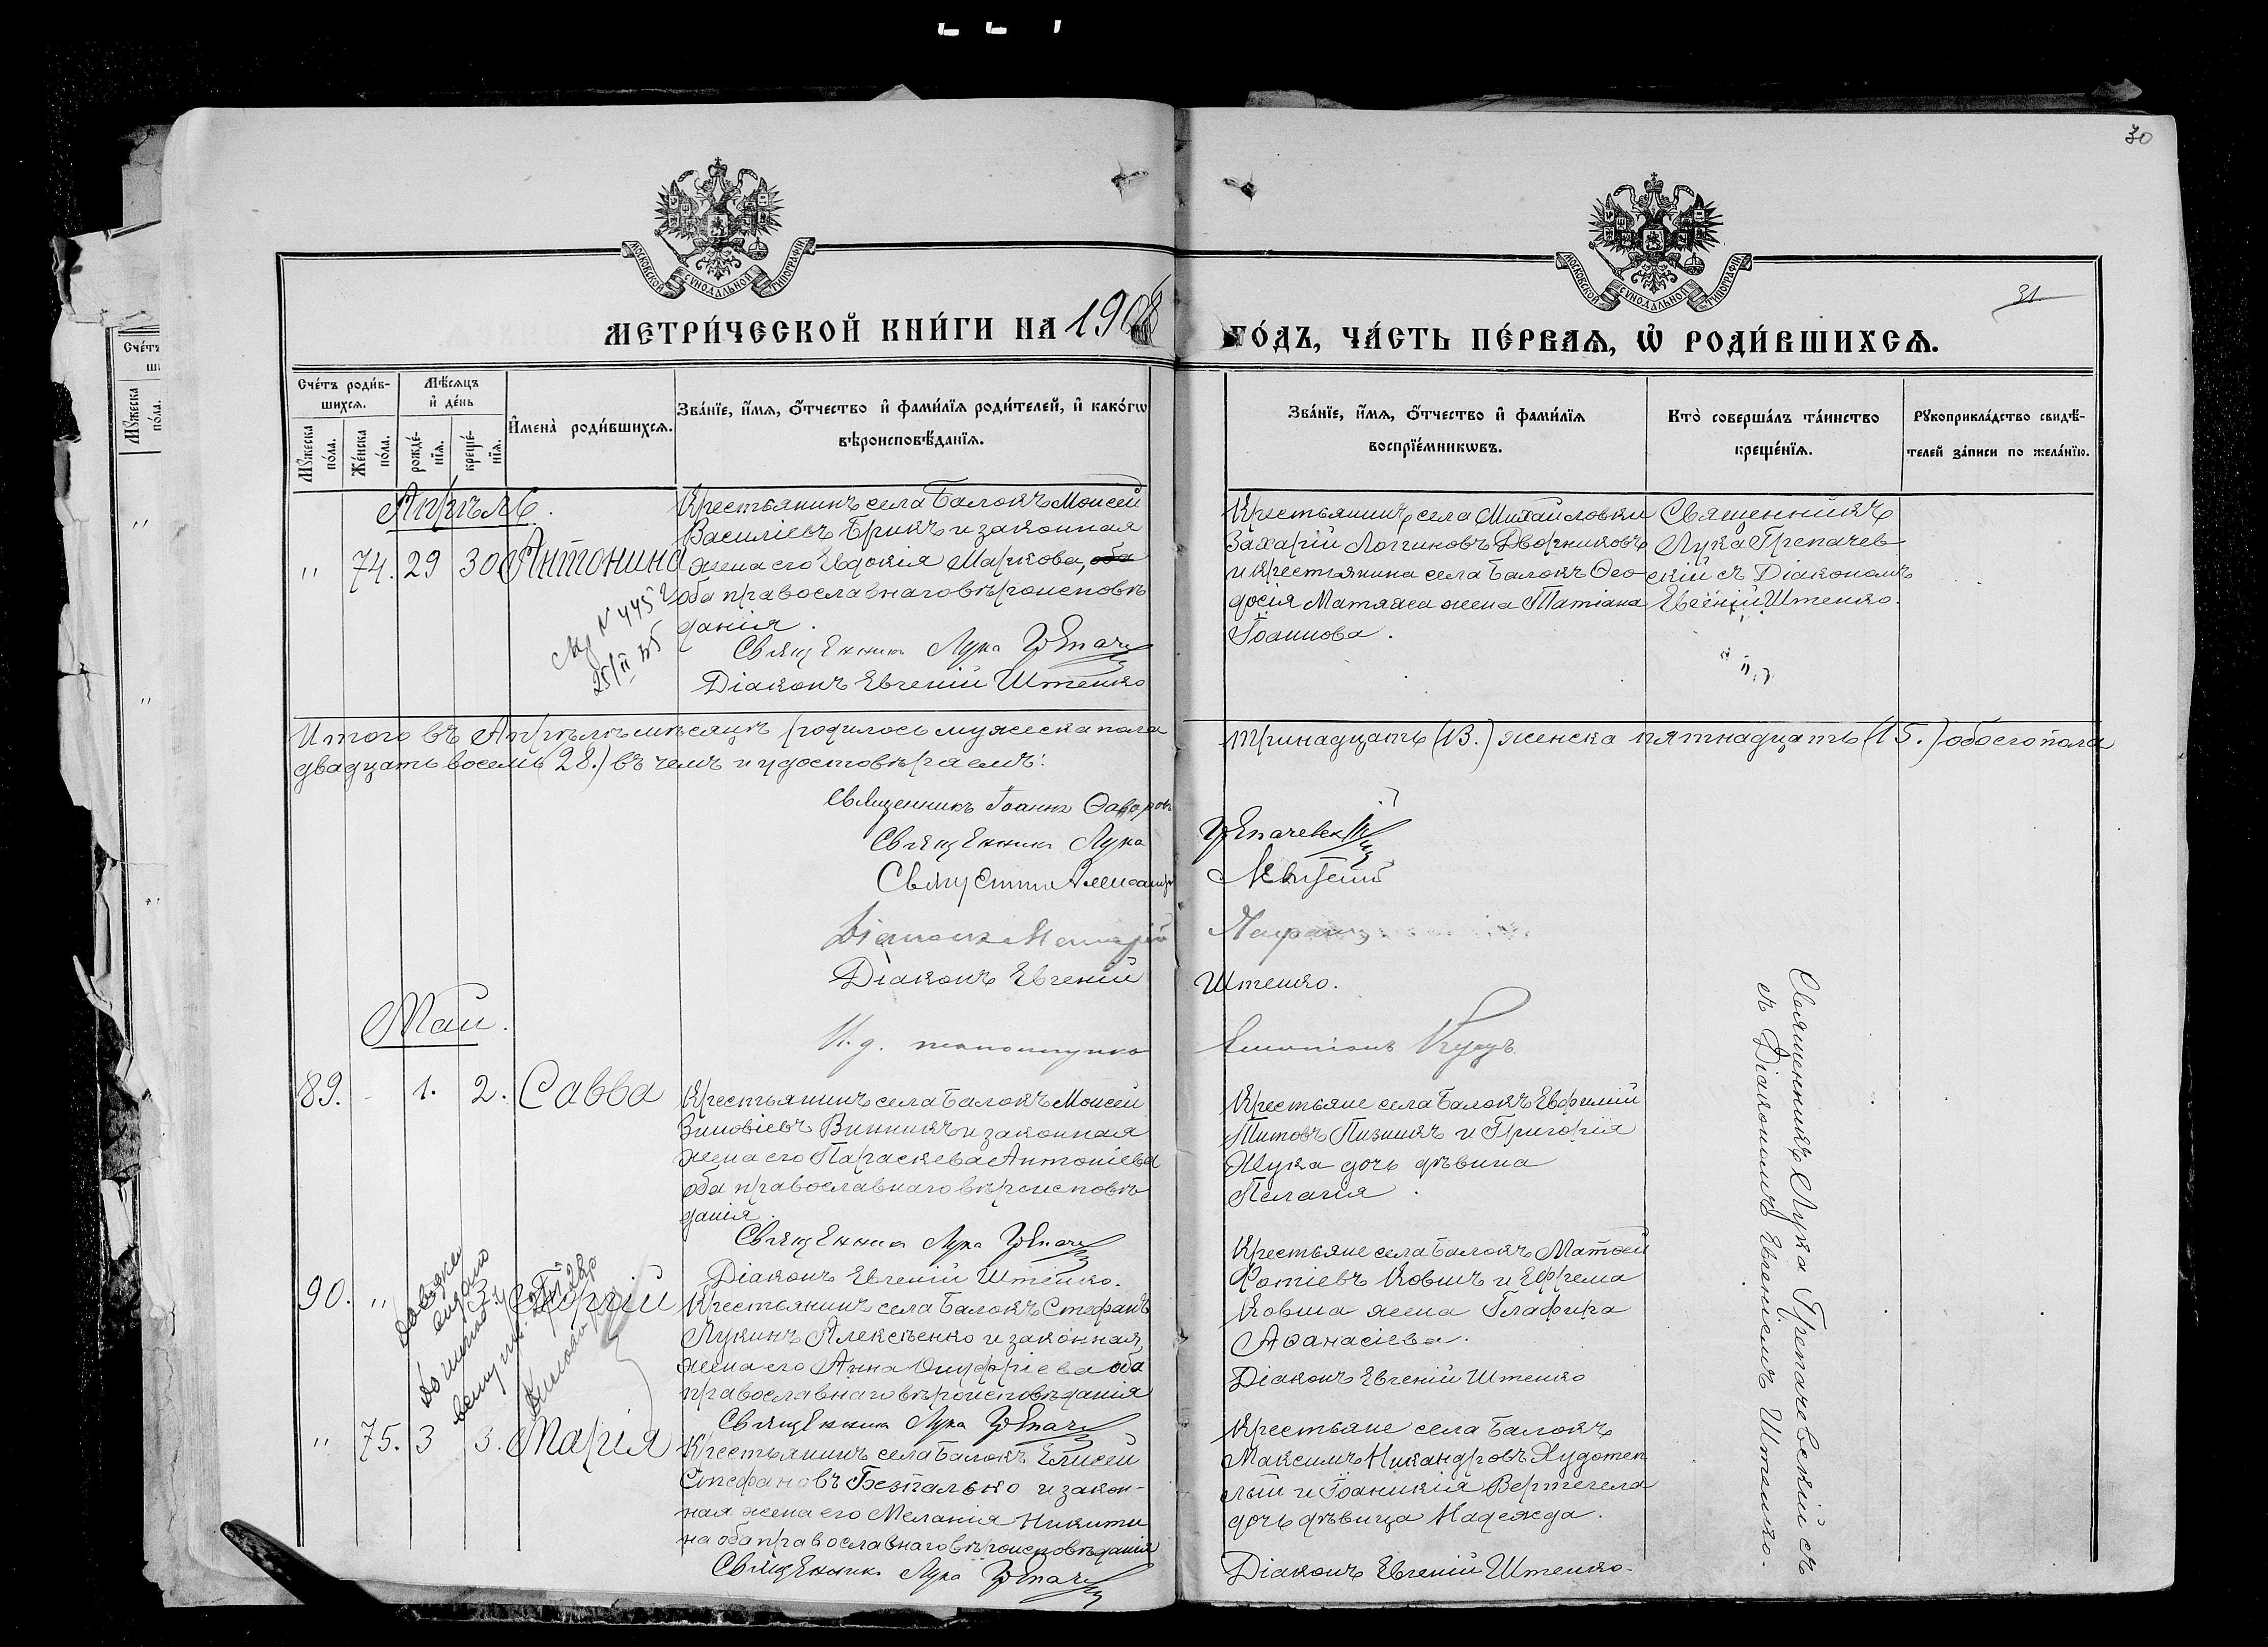 30
МОСКОВСКОЙ СѴНОДАЛЬНОЙ ТИПОГРАФІИ
МОСКОВСКОЙ СѴНОДАЛЬНОЙ ТИПОГРАФІИ
31
МЕТРИ́ЧЕСКОЙ КНИ́ГИ НА 1908
ГО́ДЪ, ЧА́СТЬ ПЕ́РВАѦ, Ѡ҆ РОДИ́ВШИХСѦ.
Сче́тъ роди́в-
шихсѧ.
Мѣ́сѧцъ
и҆ де́нь
Мꙋ́жеска
по́ла.
Же́нска
по́ла.
рожде́-
нїѧ.
креще́-
нїѧ.
И҆мена̀ роди́вшихсѧ.
Зва́нїе, и҆́мѧ, ѻ҆́тчество и҆ фами́лїѧ роди́телей, и҆ како́гѡ
вѣроисповѣ́данїѧ.
Зва́нїе, и҆́мѧ, ѻ҆́тчество и҆ фами́лїѧ
воспрїе́мникѡвъ.
Кто̀ соверша́лъ та́инство
креще́нїѧ.
Рꙋкоприкла́дство свидѣ́-
телей за́писи по жела́нїю.
Апрѣль.
" 74. 29 30 Антонина
Крестьянинъ села Балокъ Моисей
Василіевъ Брикъ и законная
жена его Евдокія Маркова, оба
оба православнаго вѣроисповѣ
данія.
Священникъ Лука
Діаконъ Евгеній Штенко
№ 445
Крестьянинъ села Михайловки
Захарій Логгиновъ Дворниковъ
и крестьянина села Балокъ Ѳео
досія Матяяса жена Татіана
Іоаннова.
Священникъ
Лука Грепачев
скій съ Діакономъ
Евгеній Штенко.
Итого въ Апрѣлѣ мѣсяцѣ родилось мужеска пола
тринадцать (13.) женска пятнадцать (15.) обоего пола
двадцать восемь (28.) въ чемъ и удостовѣряемъ:
Священникъ Іоаннъ Ѳаворовъ
Священникъ Лука Грепачевскій
Левитскій
Діаконъ Евгеній Штенко.
И. д. псаломщика
Май.
89. - 1. 2. Савва
Крестьянинъ села Балокъ Моисей
Зиновіевъ Винникъ и законная
жена его Параскева Антоніева
оба православнаго вѣроисповѣ
данія.
Священникъ Лука
Діаконъ Евгеній Штенко.
Крестьяне села Балокъ Евфимій
Титовъ Пизникъ и Григорія
Жука дочь дѣвица
Пелагія.
90. " 3. Георгій
Крестьянинъ села Балокъ Стефанъ
Лукинъ Алексѣенко и законная
жена его Анна Онуфріева оба
православнаго вѣроисповѣданія
Священникъ Лука
Крестьяне села Балокъ Матѳей
Фотіевъ Ковшъ и Ефрема
Ковша жена Глафира
Аѳанасіева.
Діаконъ Евгеній Штенко
" 75. 3 3. Марія
Крестьянинъ села Балокъ Елисей
Стефановъ Безпалько и закон-
ная жена его Меланія Никити
на оба православнаго вѣроисповѣданія
Священникъ Лука
Крестьяне села Балокъ
Максимъ Никандровъ Худотеп
лый и Іоаникія Вертегела
дочь дѣвица Надежда.
Діаконъ Евгеній Штенко.
Священникъ Лука Грепачевскій съ
съ Діакономъ Евгеніемъ Штенко.